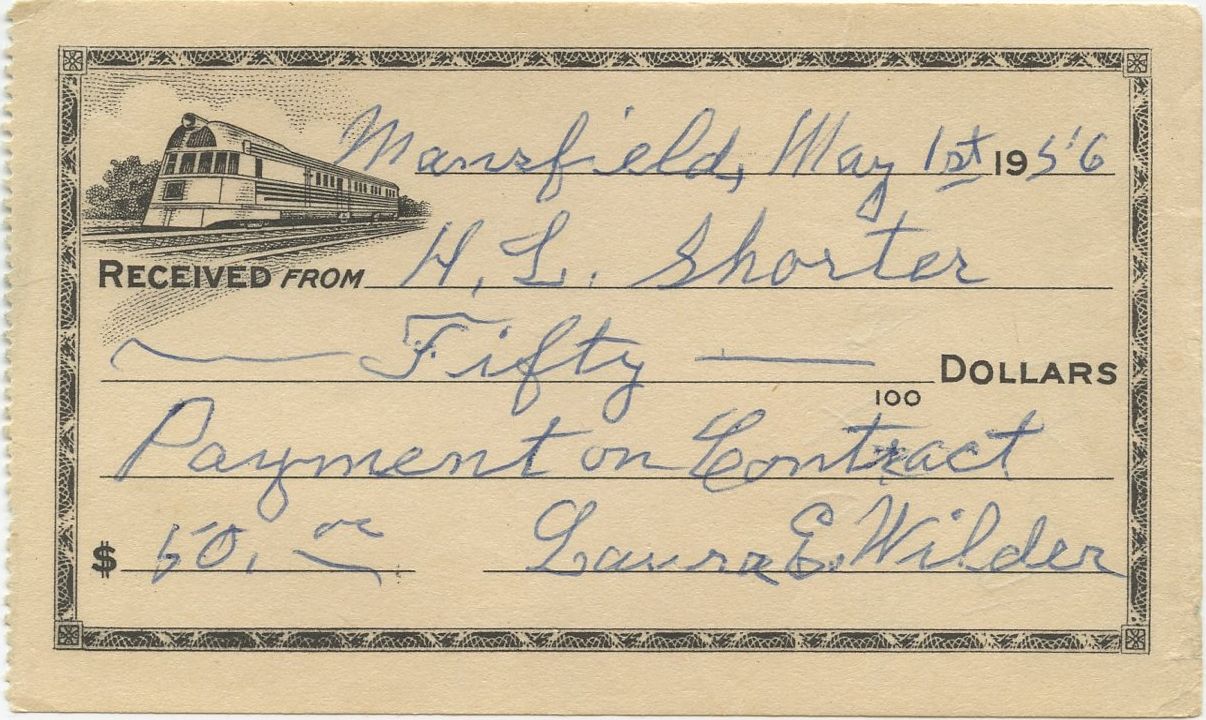 Mansfield, May 1st 1956
RECEIVED FROM H. L. Shorter
Fifty DOLLARS
100
Payment on Contract
$ 50.00 Laura E. Wilder